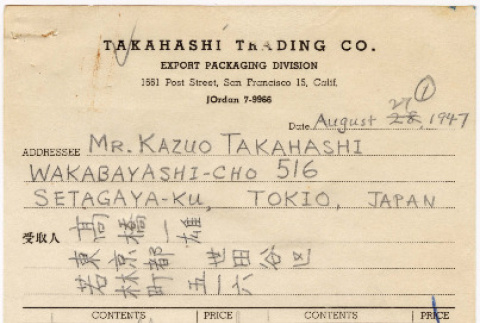 TAKAHASHI TRADING CO.
EXPORT PACKAGING DIVISION
1661 Post Street, San Francisco 15, Calif.
JOrdan 7-9966
①
Date August 27 28, 1947
ADDRESSEE MR. KAZUO TAKAHASHI
WAKABAYASHI-CHO 516
SETAGAYA-KU, TOKIO, JAPAN
受取人 高橋一雄
東京都 世田谷区
若林町 五一六
CONTENTS PRICE CONTENTS PRICE